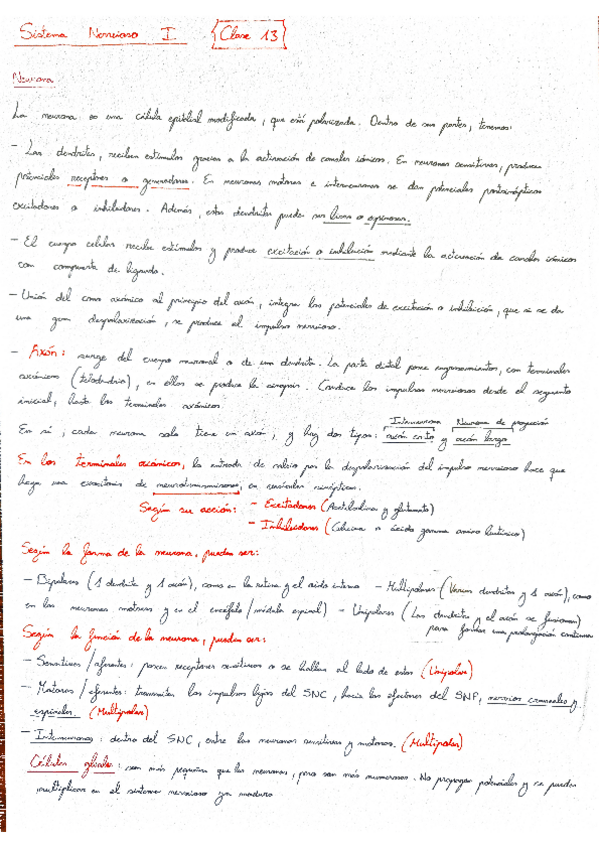 Sistema Nervioso I {Clase 13}
Neurona
La neurona es una célula epitelial modificada, que está polarizada. Dentro de sus partes, tenemos:
- Las dendritas, reciben estímulos gracias a la activación de canales iónicos. En neuronas sensitivas, producen
potenciales receptores o generadores. En neuronas motoras e interneuronas se dan potenciales postsinápticos
excitadores o inhibidores. Además, estas dendritas pueden ser lisas o espinosas.
- El cuerpo celular recibe estímulos y produce excitación o inhibición mediante la activación de canales iónicos
con compuerta de ligando.
- Unión del cono axónico al principio del axón, integra los potenciales de excitación o inhibición, que si se da
una gran despolarización, se produce el impulso nervioso.
- Axón: surge del cuerpo neuronal o de una dendrita. La parte distal posee engrosamientos, con terminales
axónicos (telodendria), en ellos se produce la sinapsis. Conduce los impulsos nerviosos desde el segmento
inicial, hasta los terminales axónicos.
Interneurona Neurona de proyección
En sí, cada neurona solo tiene un axón, y hay dos tipos: axón corto y axón largo
En los terminales axónicos, la entrada de calcio por la despolarización del impulso nervioso hace que
haya una exocitosis de neurotransmisores, en vesículas sinápticas.
Según su acción: - Excitadores (Acetilcolina y glutamato)
- Inhibidores (Glicina o ácido gamma amino butírico)
Según la forma de la neurona, pueden ser:
- Bipolares (1 dendrita y 1 axón), como en la retina y el oído interno - Multipolares (Varias dendritas y 1 axón), como
en las neuronas motoras y en el encéfalo/médula espinal) - Unipolares (Las dendritas y el axón se fusionan
para formar una prolongación continua
Según la función de la neurona, pueden ser:
- Sensitivas/aferentes: poseen receptores sensitivos o se hallan al lado de estos (Unipolar)
- Motoras/eferentes: transmiten los impulsos lejos del SNC, hacia los efectores del SNP, nervios craneales y
espinales. (Multipolar)
- Interneuronas: dentro del SNC, entre las neuronas sensitivas y motoras. (Multipolar)
Células gliales: son más pequeñas que las neuronas, pero son más numerosas. No propagan potenciales y se pueden
multiplicar en el sistema nervioso ya maduro.